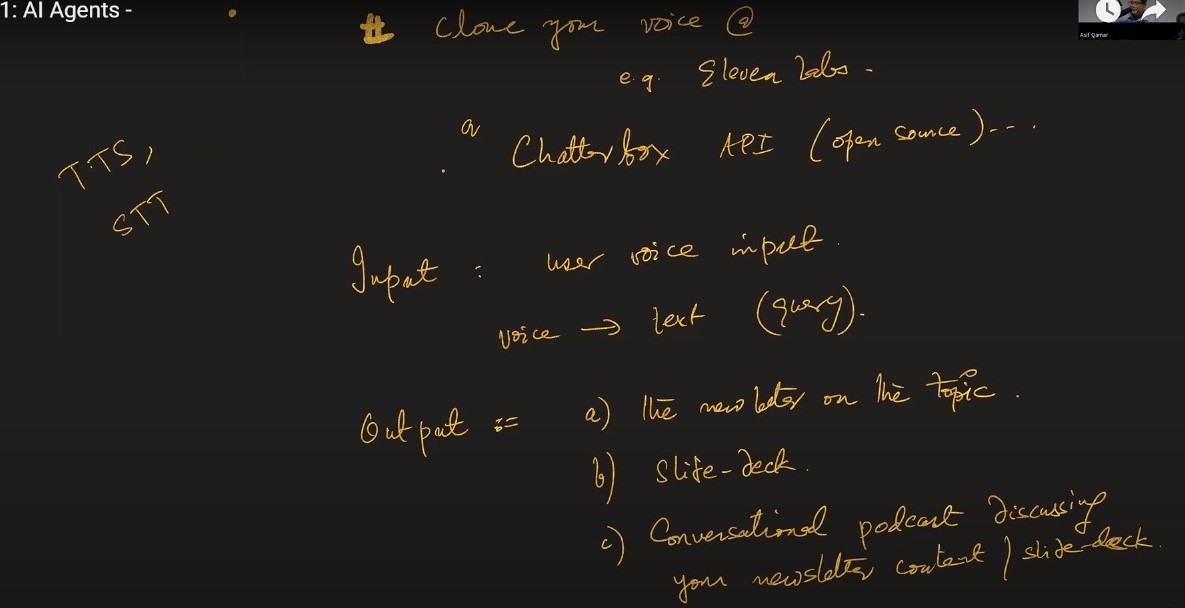 1: AI Agents -
Asif Qamar
# Clone your voice @
e.g. Eleven Labs -
Chatterbox API (open source)---.
TTS,
STT
Input : user voice input.
voice → text (query).
Output := a) the newsletter on the topic.
b) Slide-deck.
c) Conversational podcast discussing
your newsletter content / slide-deck.